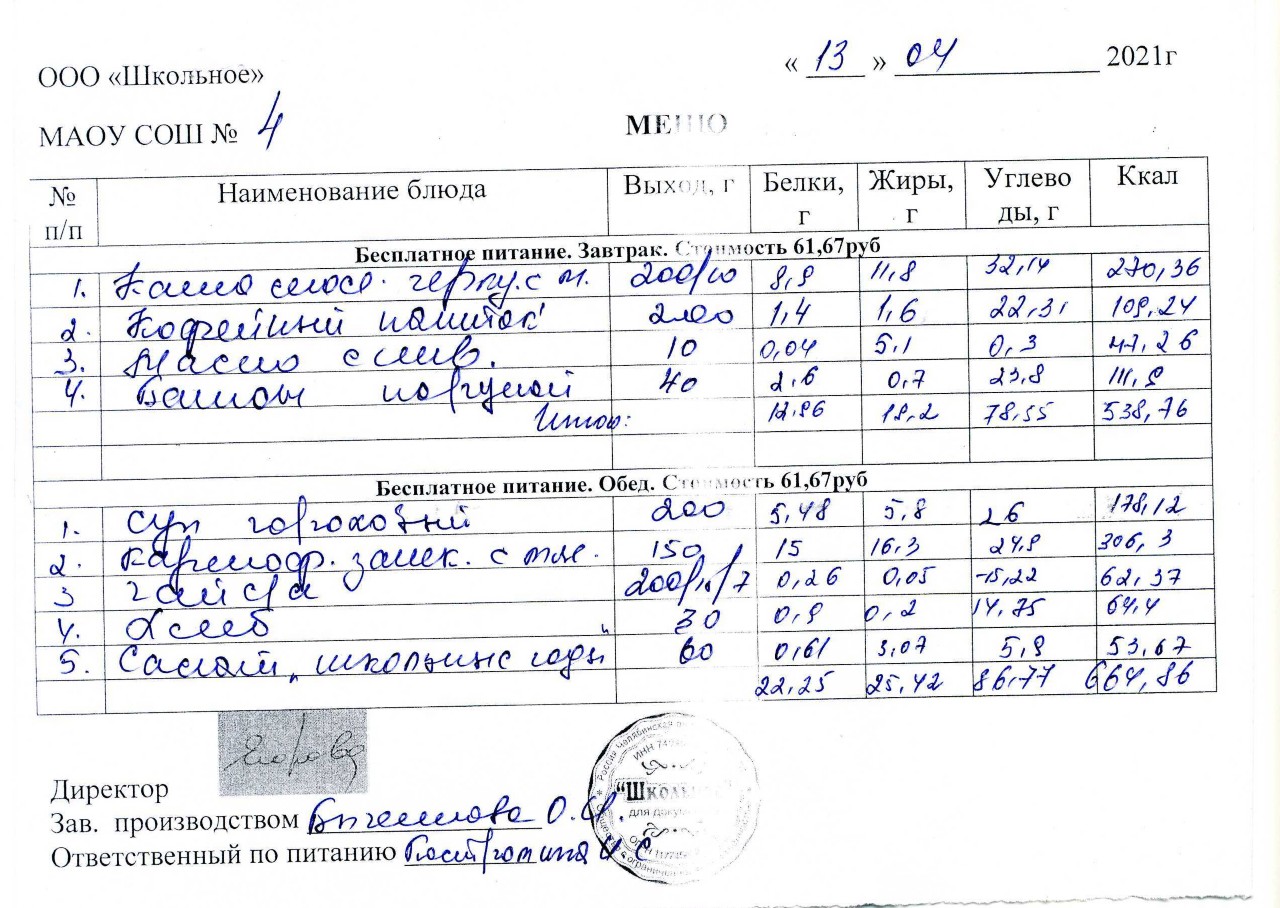 « 13 » 04 2021г
ООО «Школьное»
МАОУ СОШ № 4
МЕНЮ
№ п/п Наименование блюда Выход, г Белки, г Жиры, г Углево ды, г Ккал
Бесплатное питание. Завтрак. Стоимость 61,67руб
1. Каша с м. 200/10 8,9 11,8 32,14 270,36
2. Кофейный напиток 200 1,4 1,6 22,31 109,24
3. Масло слив. 10 0,04 5,1 0,3 47,26
4. Батон 40 2,6 0,7 23,8 111,9
Итого: 12,96 19,2 78,55 538,76
Бесплатное питание. Обед. Стоимость 61,67руб
1. Суп гороховый 200 5,48 5,8 26 178,12
2. Картоф. запек. с мяс. 150 15 16,3 24,9 306,3
3 Чай с/л 200/15/7 0,26 0,05 15,22 62,37
4. Хлеб 30 0,9 0,2 14,75 64,4
5. Салат „школьные годы" 60 0,61 3,07 5,9 53,67
22,25 25,42 86,77 664,86
Егорова
Директор
Зав. производством О.
Ответственный по питанию Костромина И С
"Школьное"
для